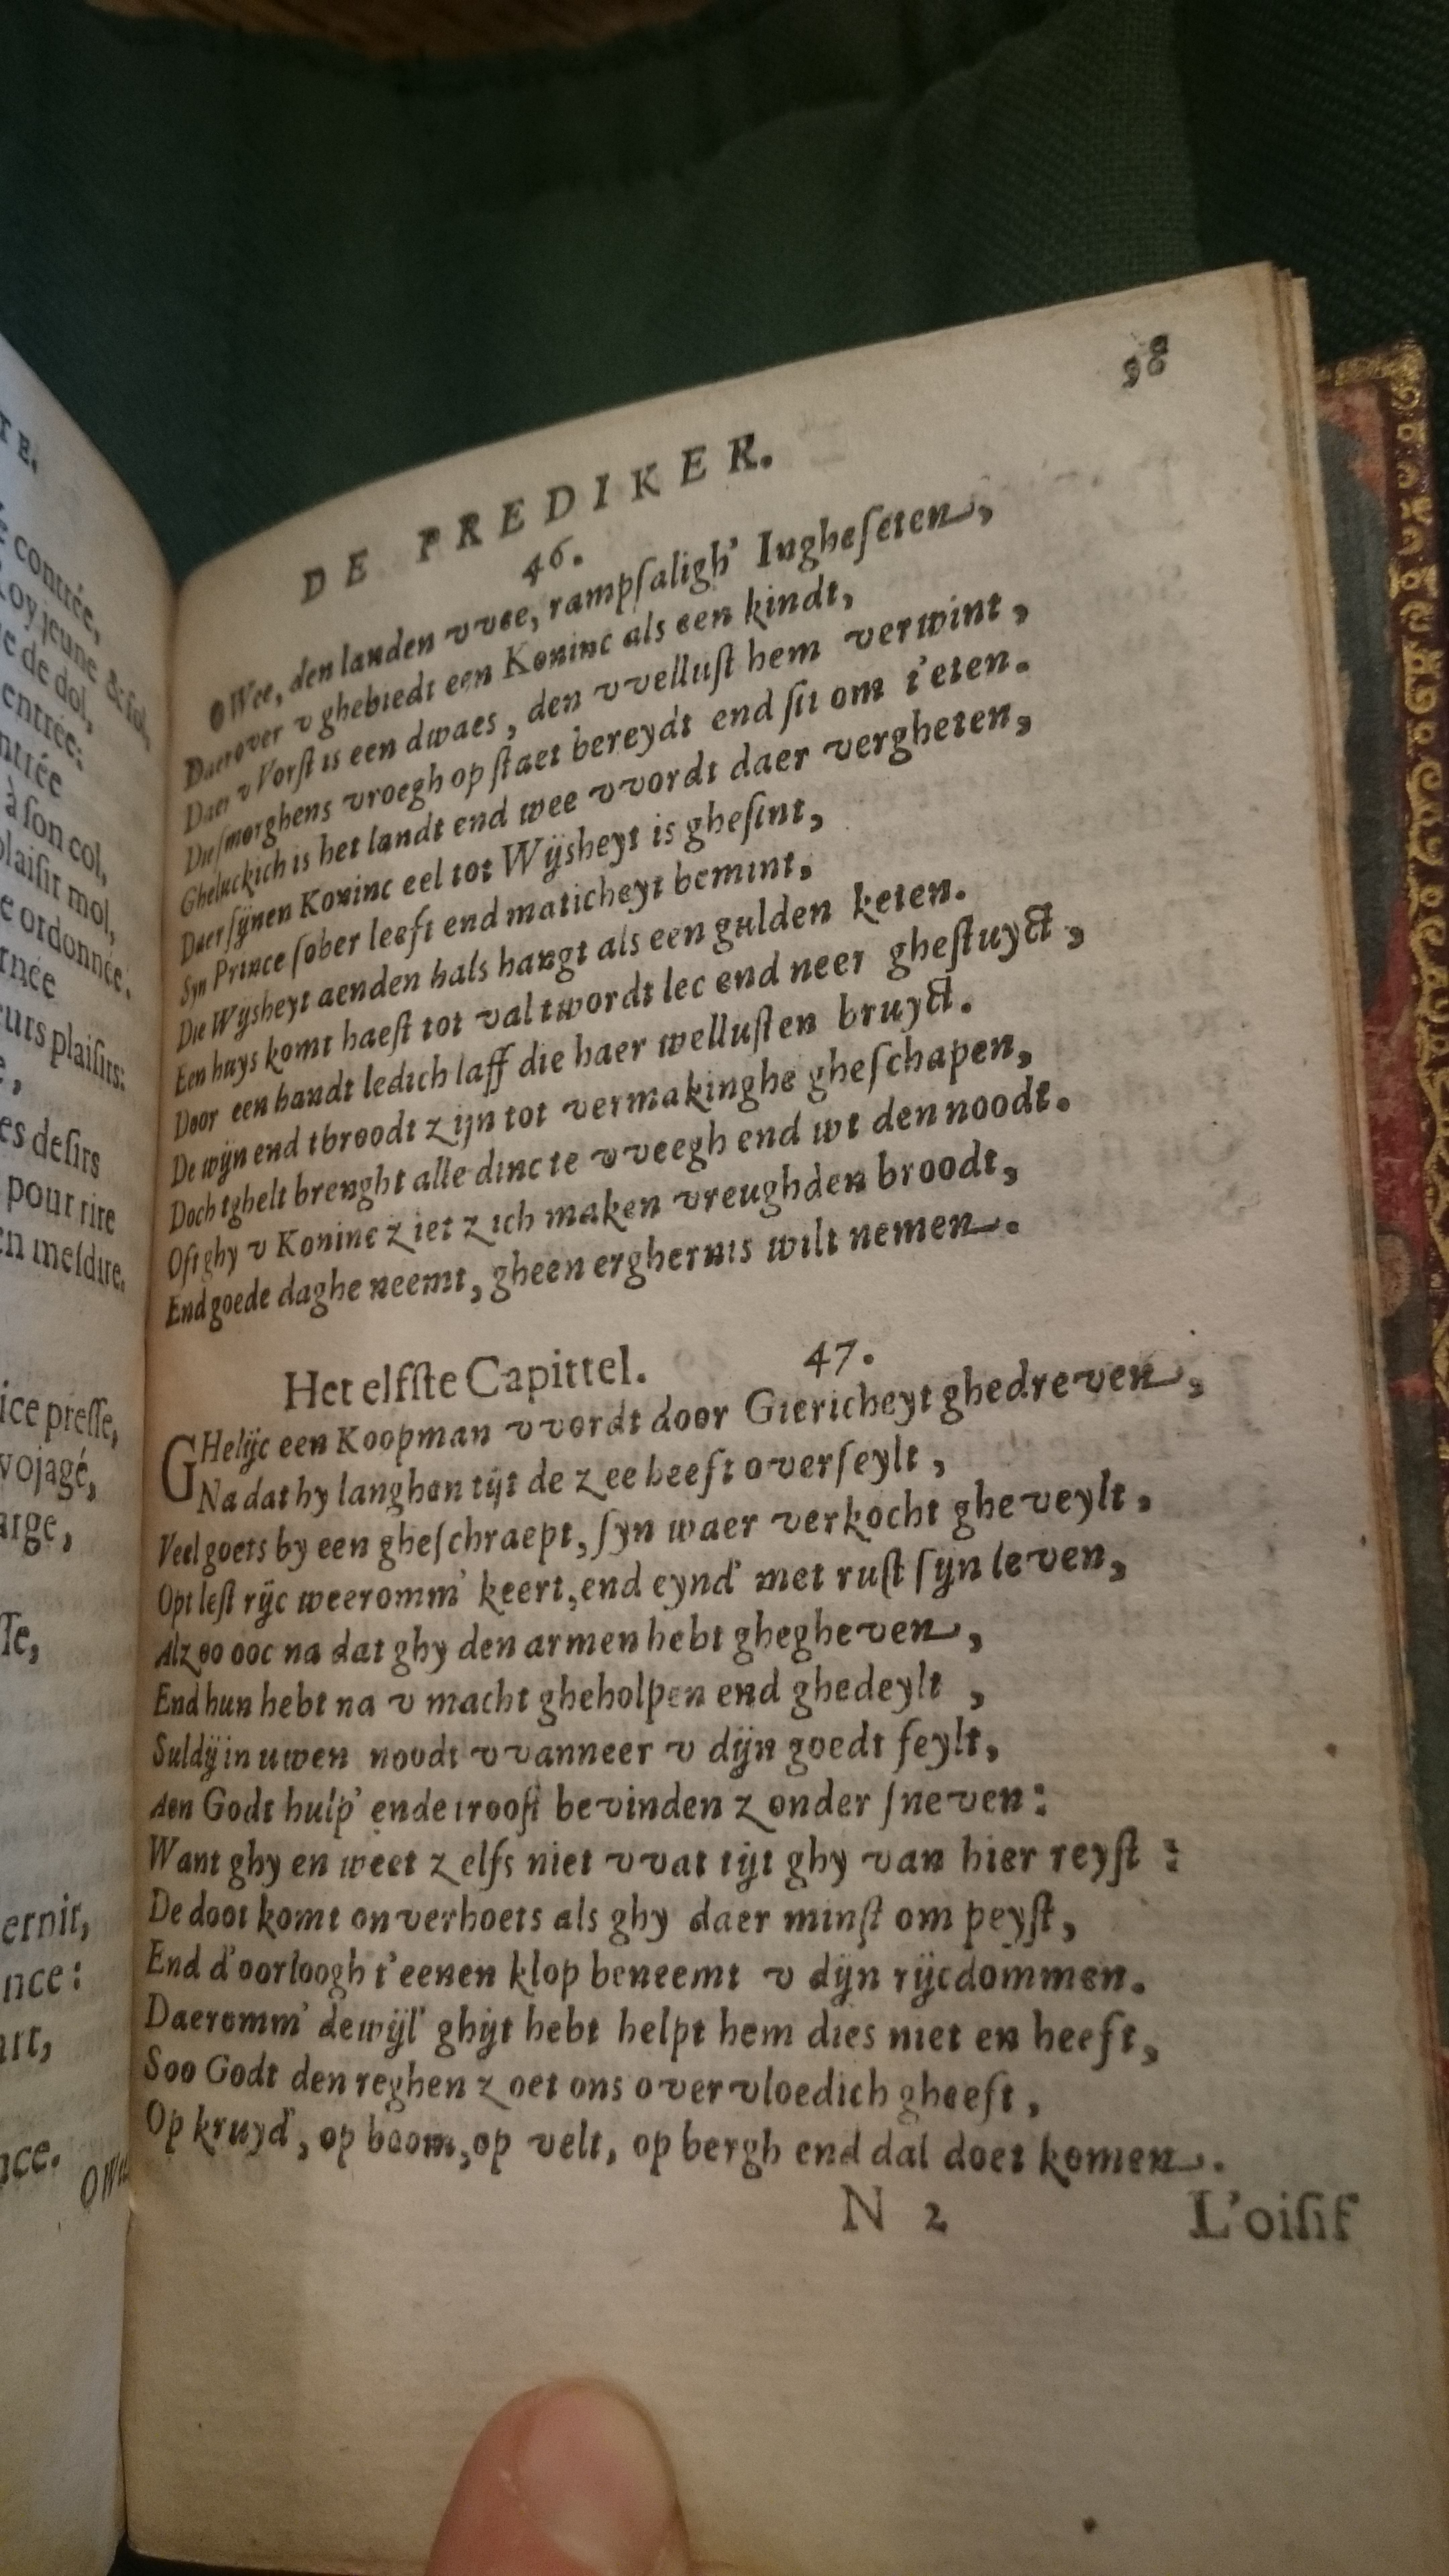 TE.
contrée,
oy jeune & fol,
de dol,
entrée:
ntrée
à ſon col,
plaiſir mol,
ordonnée.
rnée
urs plaiſirs:
es deſirs
pour rire
en meſdire.
ice preſſe,
vojagé,
arge,
ſſe,
ernir,
nce:
art,
nce.
OWee
98
DE PREDIKER.
46.
OWee, den landen vvee, rampſaligh' Ingheſeten,
Daer over v ghebiedt een Koninc als een kindt,
Daer v Vorſt is een dwaes, den vvelluſt hem verwint,
Die ſmorghens vroegh op ſtaet bereydt end ſit om t'eten.
Gheluckich is het landt end wee vvordt daer vergheten,
Daer ſijnen Koninc eel tot Wijsheyt is gheſint,
Syn Prince ſober leeft end maticheyt bemint,
Die Wijsheyt aenden hals hangt als een gulden keten.
Een huys komt haeſt tot val twordt lec end neer gheſtuyct,
Door een handt ledich laff die haer welluſten bruyct.
De wijn end tbroodt zijn tot vermakinghe gheſchapen,
Doch tghelt brenght alle dinc te vveegh end wt den noodt.
Oft ghy v Koninc ziet zich maken vreughden broodt,
End goede daghe neemt, gheen erghernis wilt nemen.
Het elfſte Capittel. 47.
GHelijc een Koopman vvordt door Giericheyt ghedreven,
Na dat hy langhen tijt de zee heeft overſeylt,
Veel goets by een gheſchraept, ſyn waer verkocht gheveylt,
Opt leſt rijc weeromm' keert, end eynd' met ruſt ſijn leven,
Alzoo ooc na dat ghy den armen hebt ghegheven,
End hun hebt na v macht gheholpen end ghedeylt,
Suldij in uwen noodt vvanneer v dijn goedt feylt,
Aen Godt hulp' ende trooſt bevinden zonder ſneven:
Want ghy en weet zelfs niet vvat tijt ghy van hier reyſt:
De doot komt onverhoets als ghy daer minſt om peyſt,
End d'oorloogh t'eenen klop beneemt v dijn rijcdommen.
Daeromm' dewijl' ghijt hebt helpt hem dies niet en heeft,
Soo Godt den reghen zoet ons overvloedich gheeft,
Op kruyd', op boom, op velt, op bergh end dal doet komen.
N 2 L'oiſif